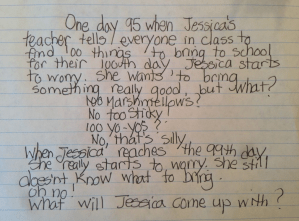 One day 95 when Jessica's
teacher tells everyone in class to
find 100 things to bring to school
for their 100th day Jessica starts
to worry. She wants to bring
something really good, but what?
100 Marshmellows?
No too sticky!
100 yo-yos?
No, that's silly
When Jessica reaches the 99th day
she really starts to worry. She still
doesnt know what to bring.
oh no!
What will Jessica come up with?